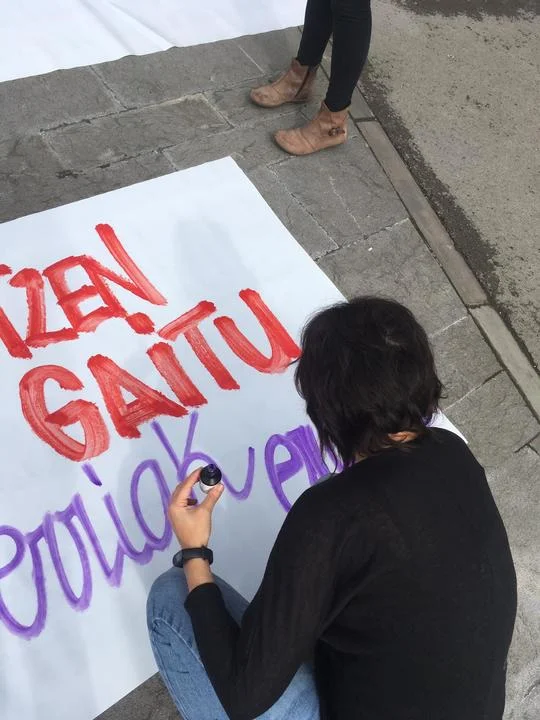 TZEN
GAITU
erriak